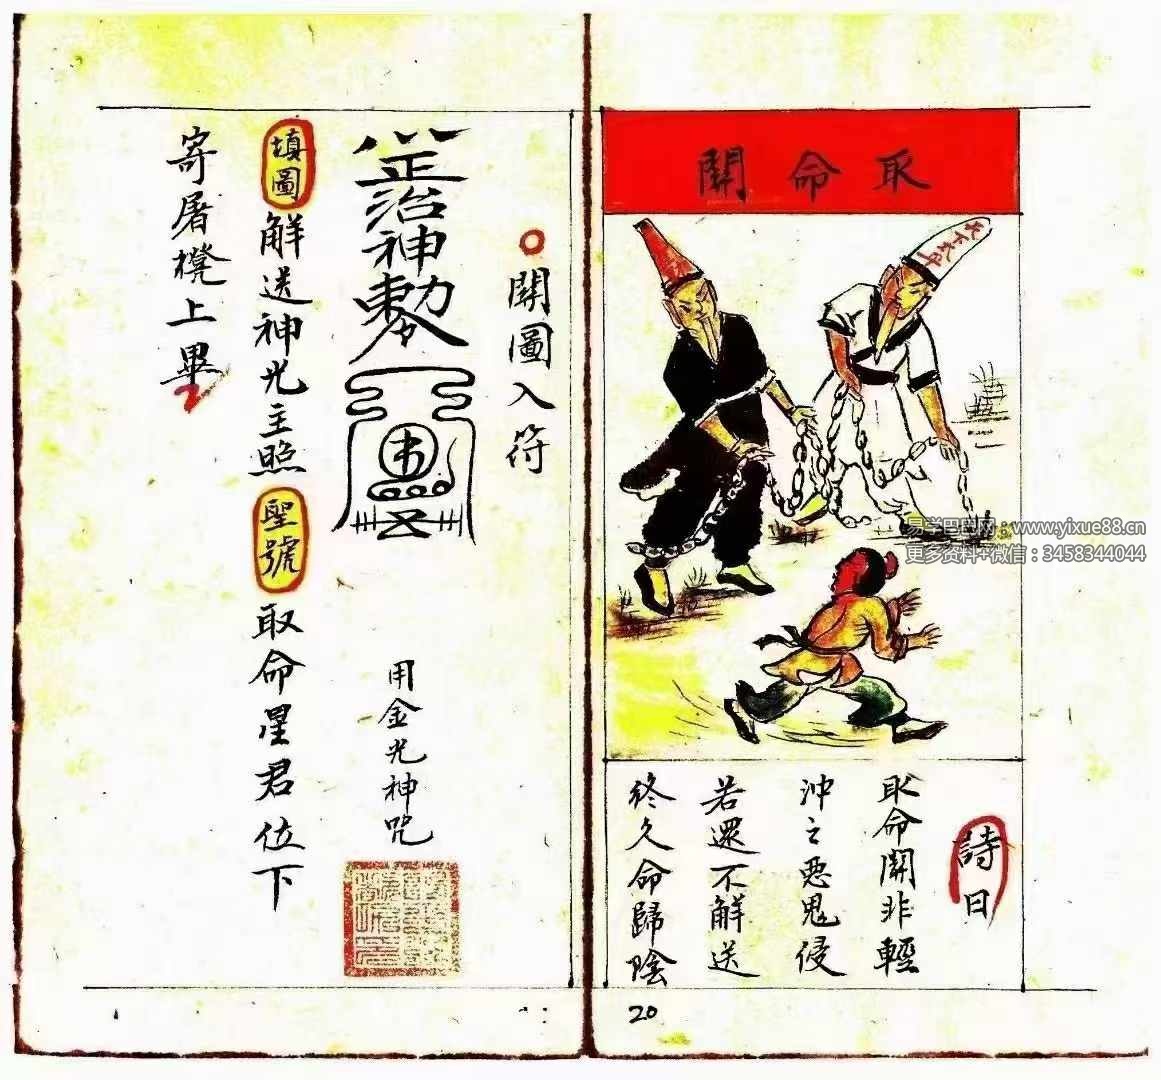 取命關
天下太平
詩曰
取命關非輕
沖之惡鬼侵
若還不解送
終久命歸陰
20
關圖入符
正治神敕
用金光神咒
填圖解送神光主照聖號取命星君位下
寄屠櫈上畢
易学巴巴网：www.yixue88.cn
更多资料+微信：3458344044